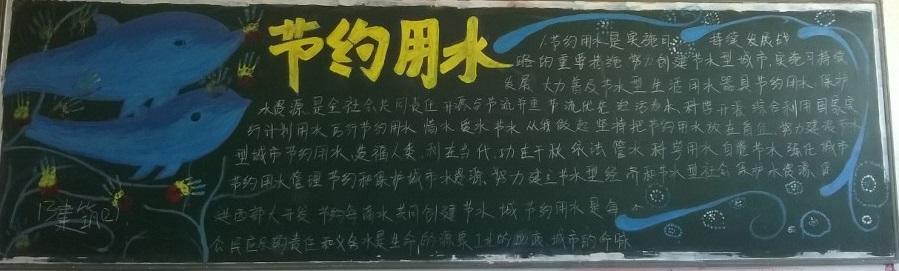 节约用水
节约用水是实施可持续发展战
略的重要措施 努力创建节水型城市 实施可持续
发展 大力普及节水型生活用水器具 节约用水 保护
水资源是全社会共同责任 开源与节流并重 节流优先 治污为本 科学开源 综合利用 国家实
行计划用水 厉行节约用水 惜水 爱水 节水 从我做起 坚持把节约用水放在首位 努力建设节水
型城市 节约用水 造福人类 利在当代 功在千秋 依法管水 科学用水 自觉节水 强化城市
节约用水管理 节约和保护城市水资源 努力建立节水型经济和节水型社会 保护水资源
进西部大开发 节约每滴水 共同创建节水城 节约用水是每
公民应尽的责任和义务 水是生命的源泉 工业的血液 城市的命脉
13建筑